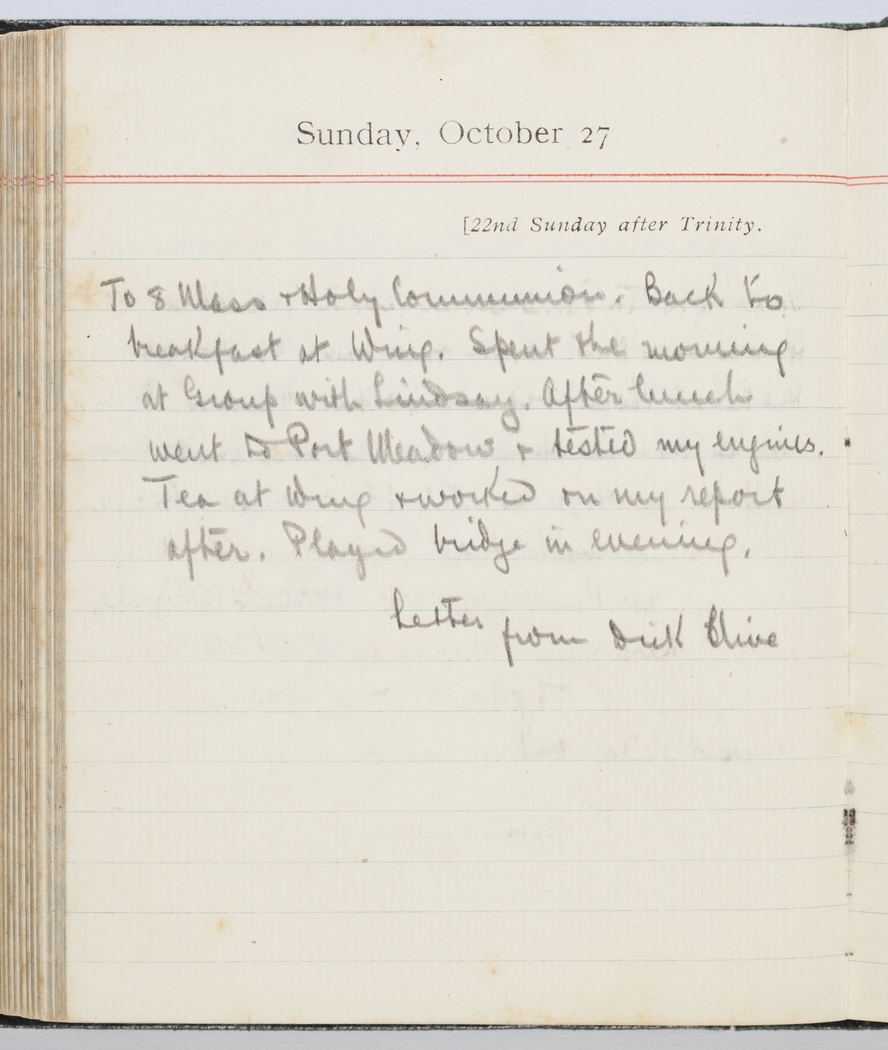 Sunday, October 27
[22nd Sunday after Trinity.
To 8 Mass + Holy Communion. Back to
breakfast at Wing. Spent the morning
at Group with Lindsay. After lunch
went to Port Meadow + tested my engines.
Tea at Wing + worked on my report
after. Played bridge in evening.
Letter from Dick Clive